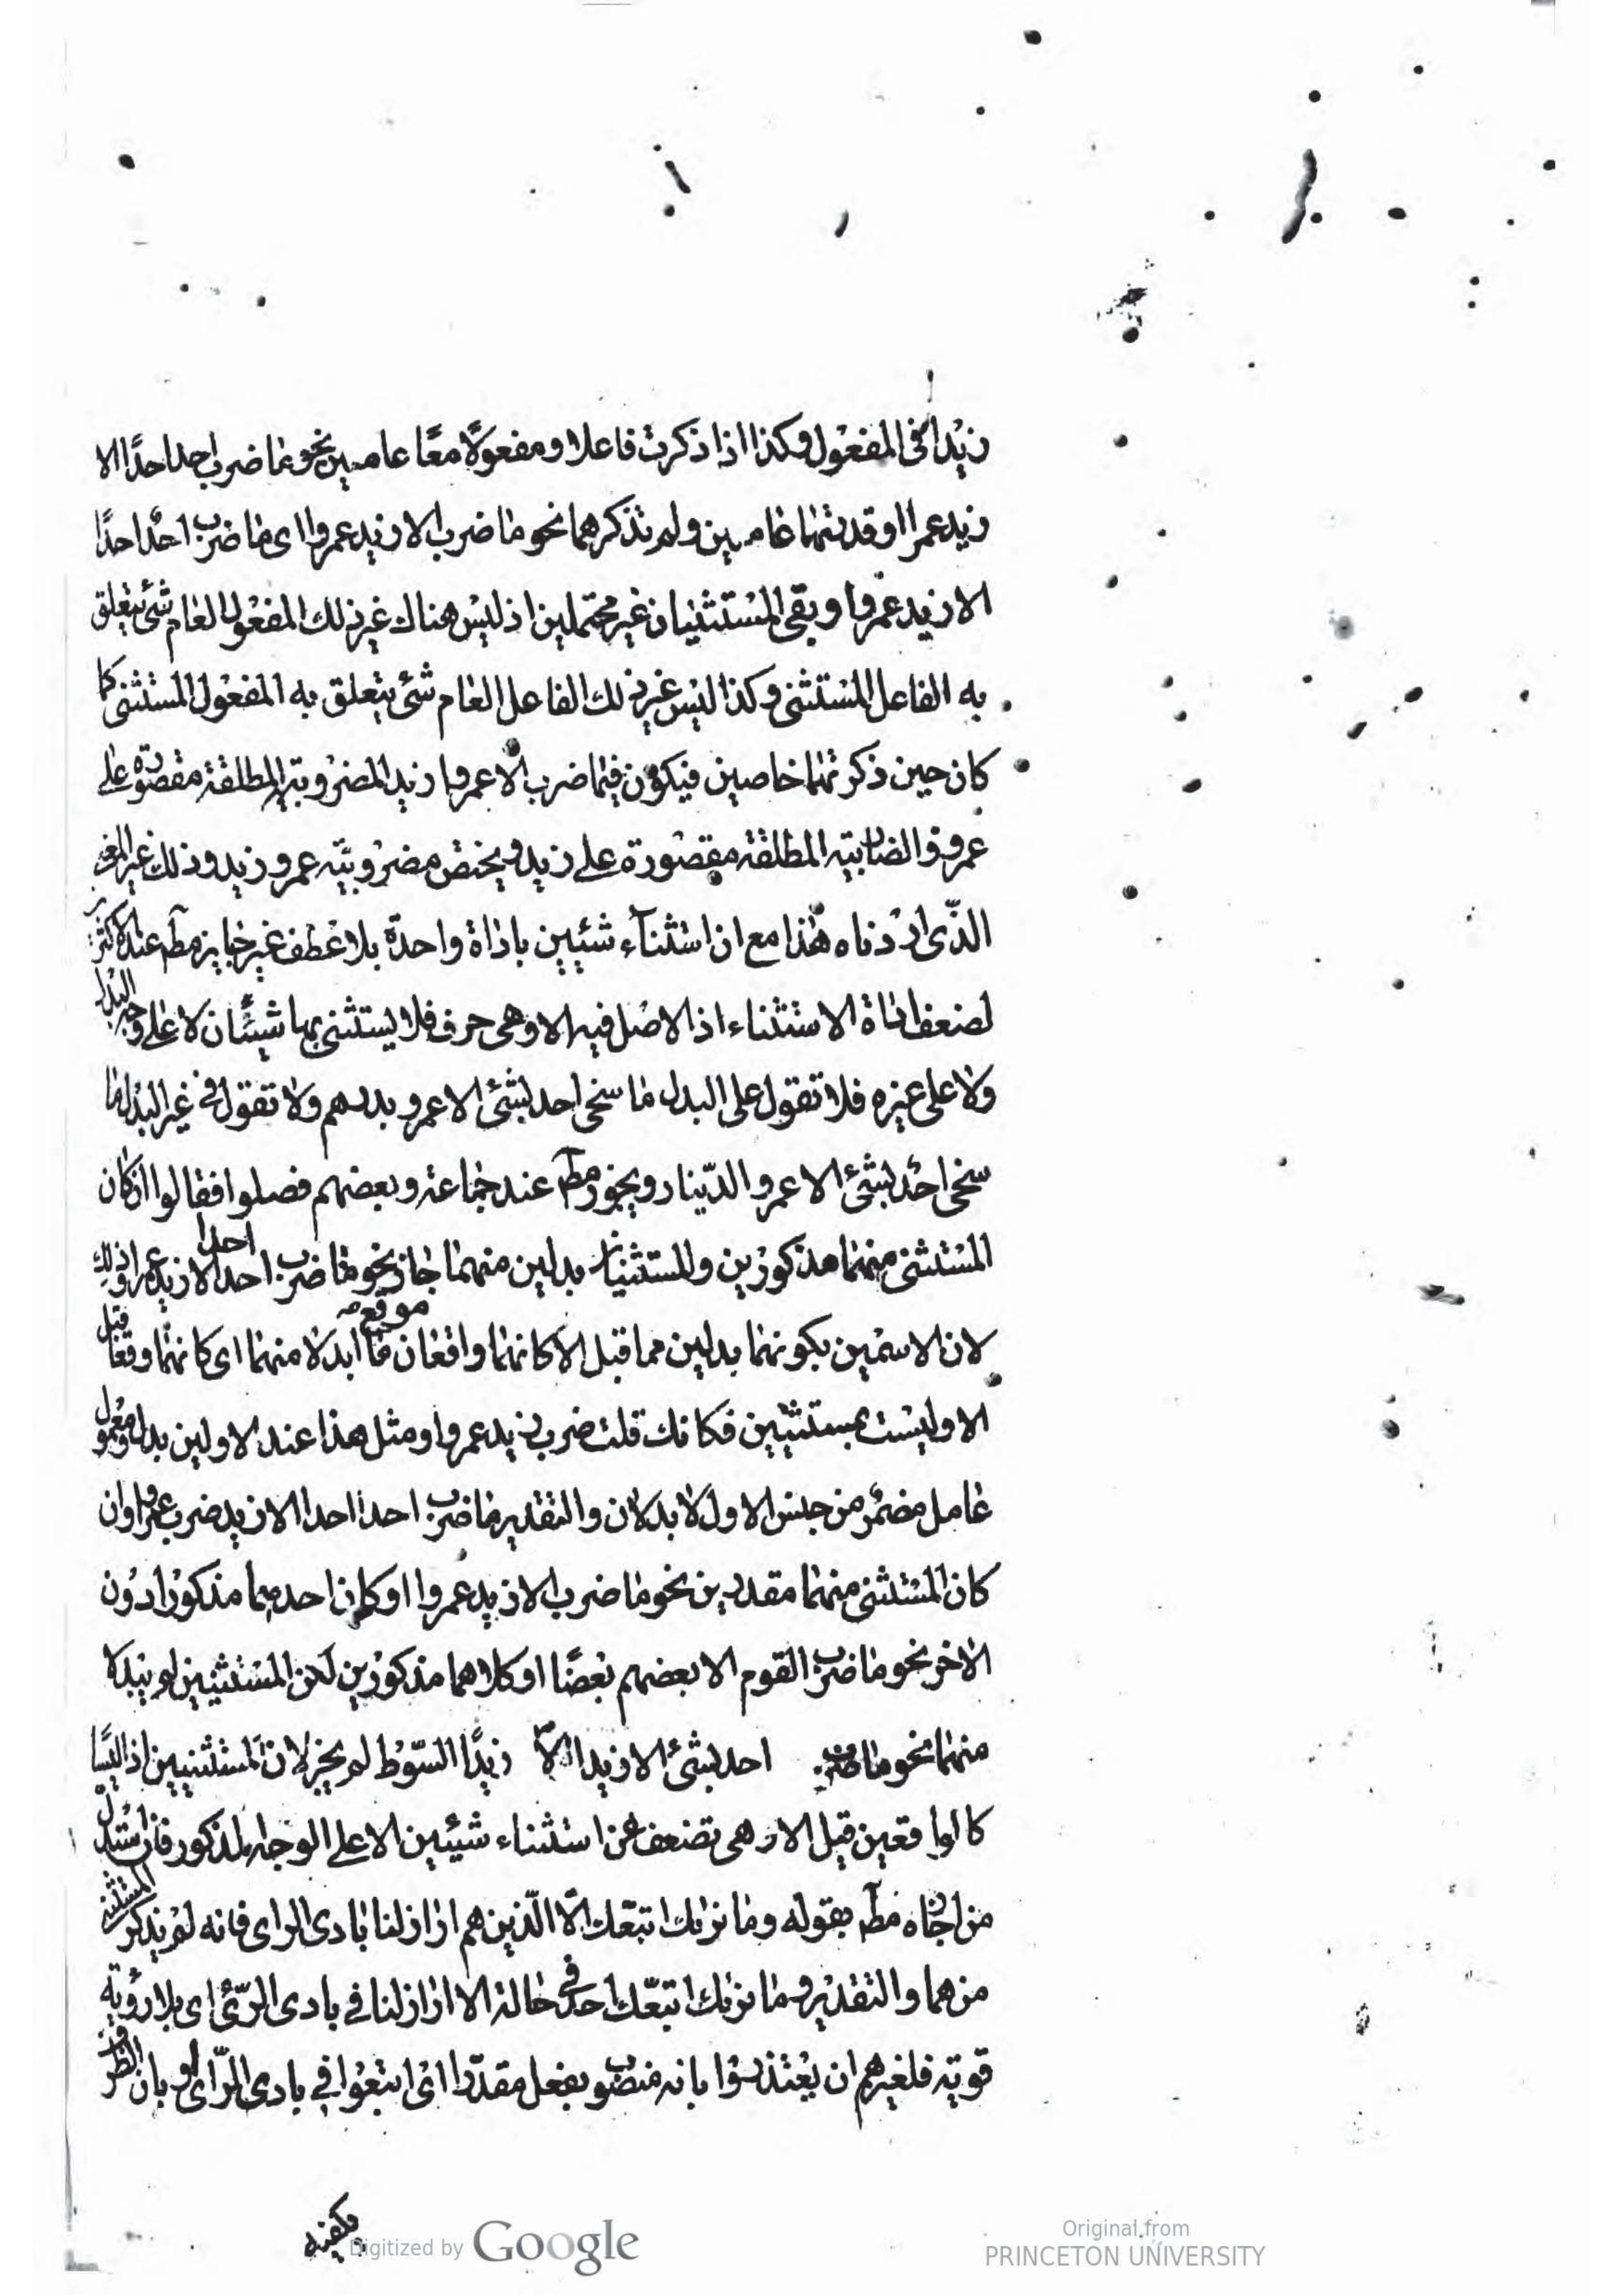 زيدا في المفعول وكذا اذا ذكرت فاعلا ومفعولًا معًا عامين نحو ما ضرب احد احدًا الا
زيد عمرا او قدرتهما عامين ولم تذكرهما نحو ما ضرب الا زيد عمروا اى ما ضرب احد احدًا
الا زيد عمروا وبقى المستثنيان غير محتملين اذ ليس هناك غير ذلك المفعول العام شئ يتعلق
به الفاعل المستثنى وكذا ليس غير ذلك الفاعل العام شئ يتعلق به المفعول المستثنى كما
كان حين ذكرتهما خاصين فيكون فيما ضرب الا عمروا زيد المضروبية المطلقة مقصورة على
عمرو والضاربية المطلقة مقصورة على زيد ويختص مضروبية عمرو وزيد وذلك غير المعنى
الذى اردناه هذا مع ان استثناء شيئين باداة واحدة بلا عطف غير جايز مط عند الاكثر
لضعف اداة الاستثناء اذ الاصل فيه الا وهى حرف فلا يستثنى بها شيئان لا على وجه البدل
ولا على غيره فلا تقول على البدل ما سخى احد بشئ الا عمرو بدرهم ولا تقول فى غير البدل ما
سخى احد بشئ الا عمرو الدينار ويجوز مط عند جماعة وبعضهم فصلوا فقالوا ان كان
المستثنى منهما مذكورين والمستثنيان بدلين منهما جاز نحو ما ضرب احد احدا الا زيد عمروا وذلك
لان الاسمين بكونهما بدلين مما قبل الا كانهما واقعان موقع ما ابدلا منهما اى كانهما وقعا قبل
الا وليست بمستثنيين فكانك قلت ضرب زيد عمروا ومثل هذا عند الاولين بدل ومعمول
عامل مضمر من جنس الاول لا بدلان والتقدير ما ضرب احد احدا الا زيد ضرب عمروا وان
كان المستثنى منهما مقدرين نحو ما ضرب الا زيد عمروا او كان احدهما مذكورا دون
الاخر نحو ما ضرب القوم الا بعضهم بعضًا او كلاهما مذكورين لكن المستثنيين لم يبدلا
منهما نحو ما ضرب احد بشئ الا زيدا الا زيدًا السوط لم يجز لان المستثنيين اذا ليسا
كالواقعين قبل الا وهى تضعف عن استثناء شيئين الا على الوجه المذكور فان استدل
من اجازه مط بقوله وما نريك اتبعك الّا الّذين هم اراذلنا بادى الراى فانه لم يذكر المستثنى
منهما والتقدير وما نريك اتبعك احد فى حالة الا اراذلنا فى بادى الرئ اى بلا روية
قوية فلغيرهم ان يعتذروا بانه منصوب بفعل مقدر اى اتبعوا فى بادى الراى او بان الظرف
يكفيه
Digitized by Google
Original from
PRINCETON UNIVERSITY